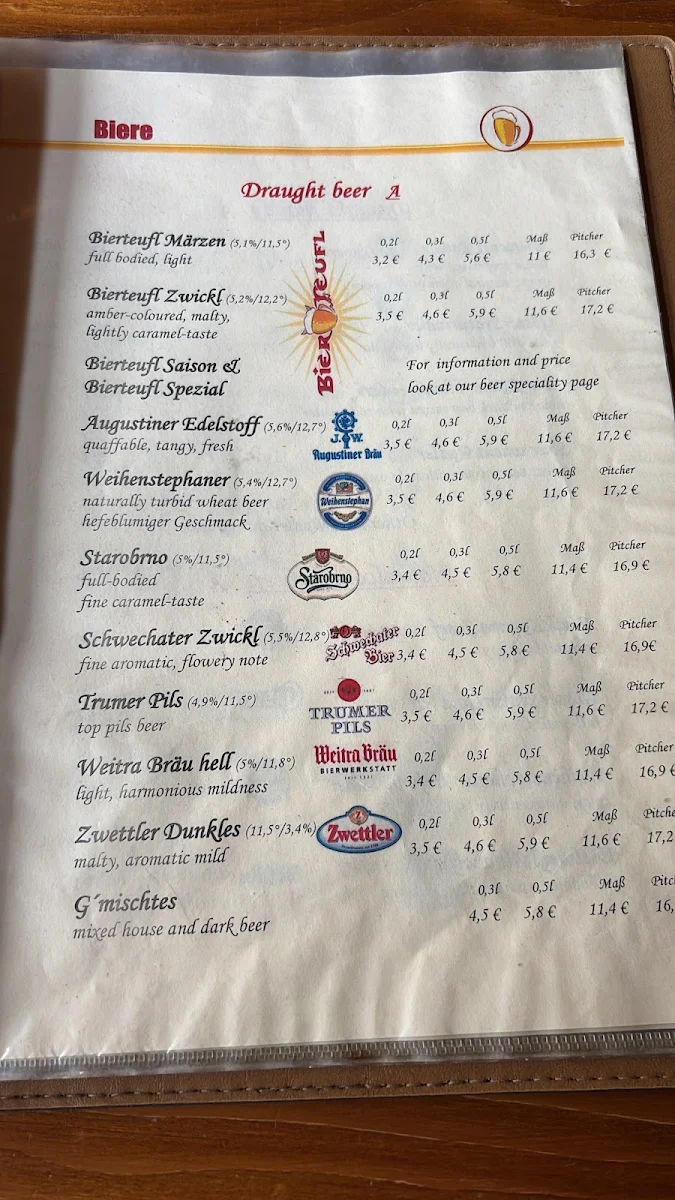 Biere
Draught beer A
Bierteufl Märzen (5,1%/11,5°) 0,2l 0,3l 0,5l Maß Pitcher
full bodied, light 3,2 € 4,3 € 5,6 € 11 € 16,3 €
BIERTEUFL
Bierteufl Zwickl (5,2%/12,2°) 0,2l 0,3l 0,5l Maß Pitcher
amber-coloured, malty, 3,5 € 4,6 € 5,9 € 11,6 € 17,2 €
lightly caramel-taste
Bierteufl Saison & For information and price
Bierteufl Spezial look at our beer speciality page
Augustiner Edelstoff (5,6%/12,7°) 0,2l 0,3l 0,5l Maß Pitcher
quaffable, tangy, fresh J.W. 3,5 € 4,6 € 5,9 € 11,6 € 17,2 €
Augustiner Bräu
Weihenstephaner (5,4%/12,7°) 0,2l 0,3l 0,5l Maß Pitcher
naturally turbid wheat beer Weihenstephan 3,5 € 4,6 € 5,9 € 11,6 € 17,2 €
hefeblumiger Geschmack
Starobrno (5%/11,5°) 0,2l 0,3l 0,5l Maß Pitcher
full-bodied Starobrno 3,4 € 4,5 € 5,8 € 11,4 € 16,9 €
fine caramel-taste
Schwechater Zwickl (5,5%/12,8°) Schwechater 0,2l 0,3l 0,5l Maß Pitcher
fine aromatic, flowery note Bier 3,4 € 4,5 € 5,8 € 11,4 € 16,9€
Trumer Pils (4,9%/11,5°) 0,2l 0,3l 0,5l Maß Pitcher
top pils beer TRUMER 3,5 € 4,6 € 5,9 € 11,6 € 17,2 €
PILS
Weitra Bräu hell (5%/11,8°) Weitra Bräu 0,2l 0,3l 0,5l Maß Pitcher
light, harmonious mildness BIERWERKSTATT 3,4 € 4,5 € 5,8 € 11,4 € 16,9 €
Zwettler Dunkles (11,5°/3,4%) Zwettler 0,2l 0,3l 0,5l Maß Pitche
malty, aromatic mild 3,5 € 4,6 € 5,9 € 11,6 € 17,2
G´mischtes 0,3l 0,5l Maß Pitc
mixed house and dark beer 4,5 € 5,8 € 11,4 € 16,